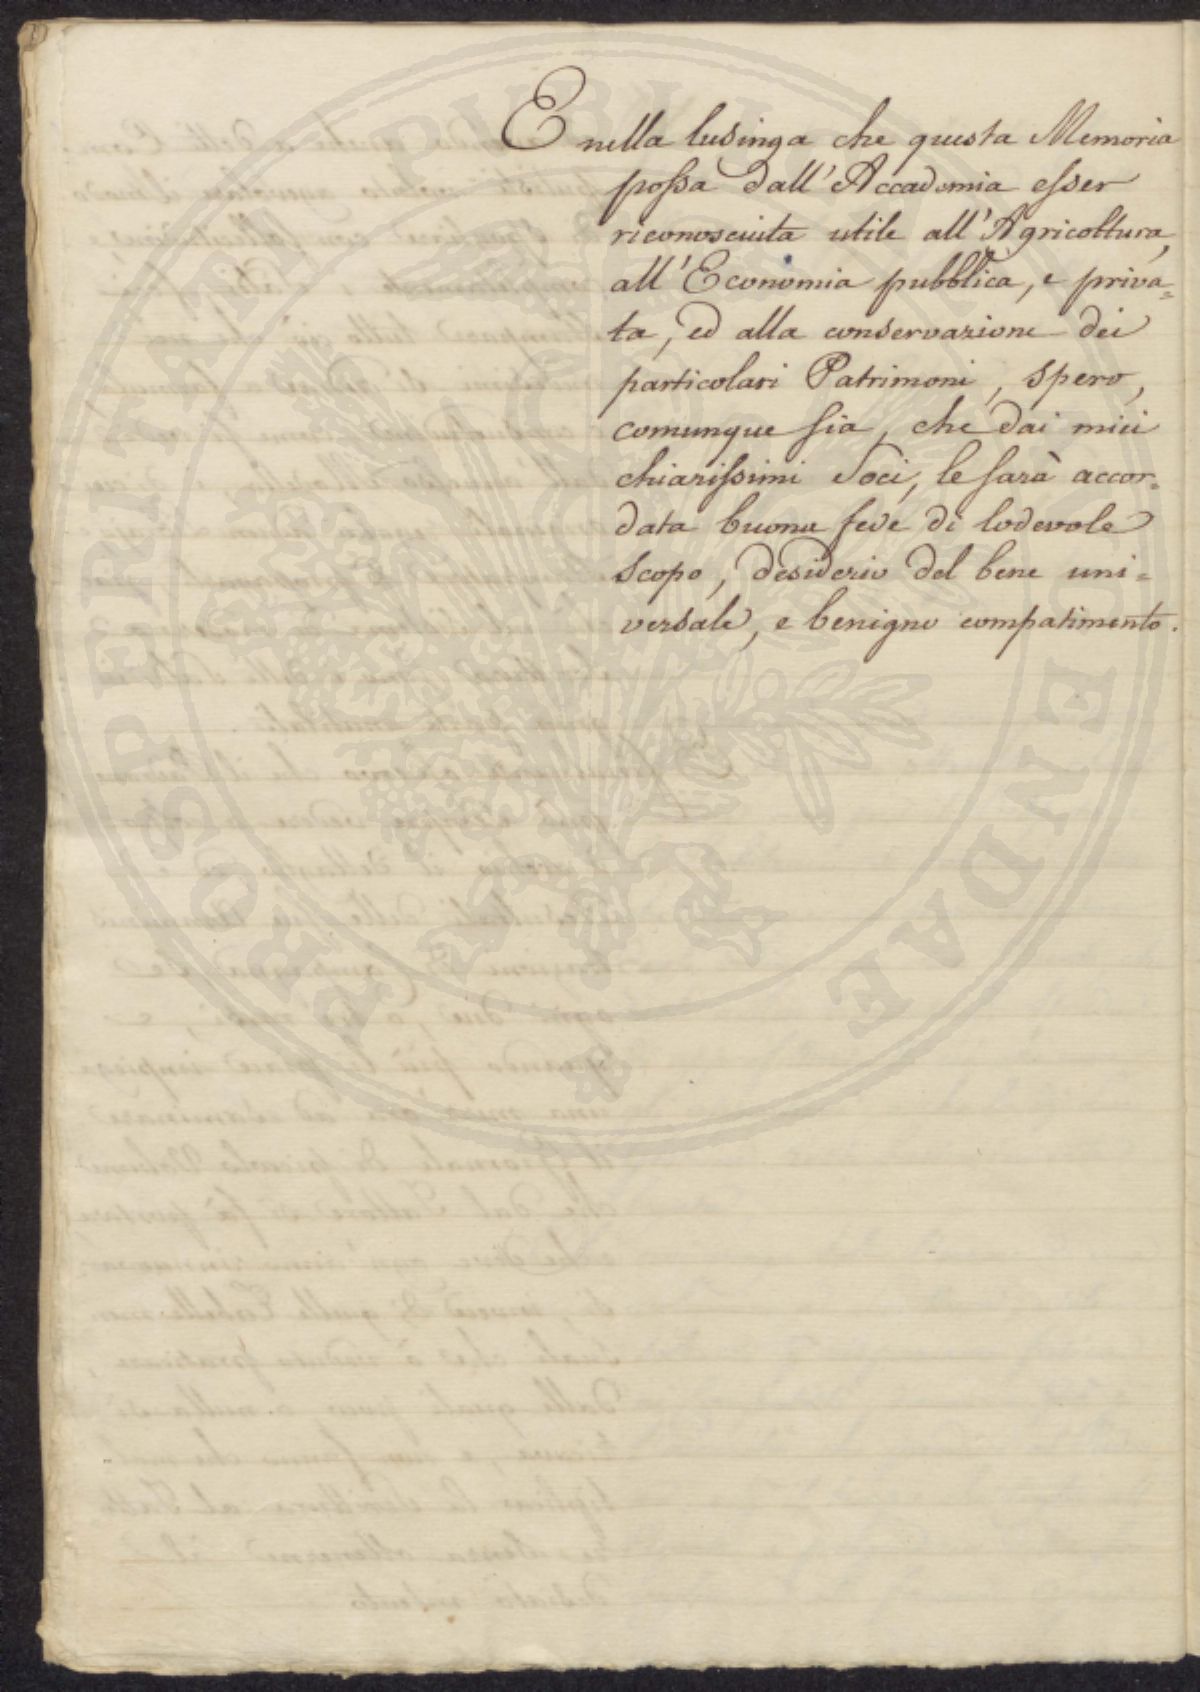 E nella lusinga che questa Memoria
possa dall'Accademia esser
riconosciuta utile all'Agricoltura,
all'Economia pubblica, e priva=
ta, ed alla conservazione dei
particolari Patrimoni, spero,
comunque sia, che dai miei
chiarissimi Soci, le sarà accor=
data buona fede di lodevole
scopo, desiderio del bene uni=
versale, e benigno compatimento.
PROSPERITATI PUBLICAE AUGENDAE